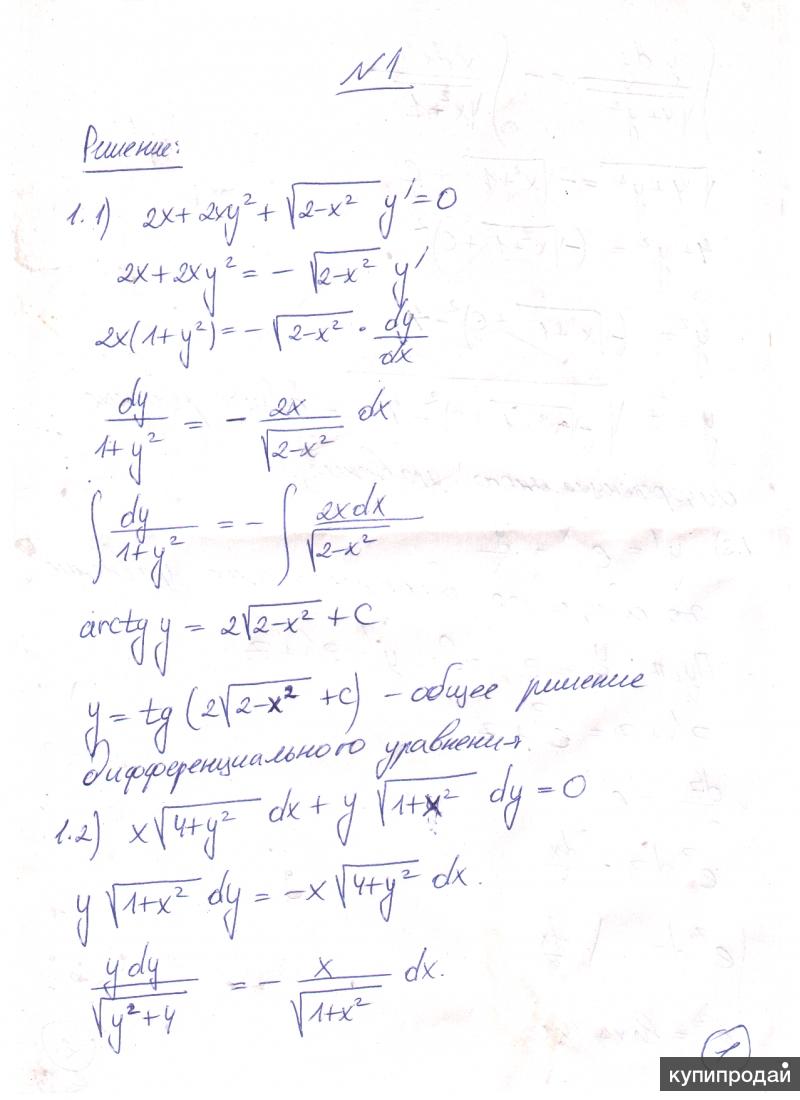 N1
Решение:
1.1) 2x + 2xy² + √(2-x²) y' = 0
2x + 2xy² = - √(2-x²) y'
2x(1+y²) = - √(2-x²) · dy/dx
dy/(1+y²) = - 2x/√(2-x²) dx
∫ dy/(1+y²) = - ∫ 2xdx/√(2-x²)
arctg y = 2√(2-x²) + C
y = tg (2√(2-x²) + C) – общее решение
дифференциального уравнения.
1.2) x√(4+y²) dx + y √(1+x²) dy = 0
y √(1+x²) dy = -x √(4+y²) dx.
ydy/√(y²+4) = - x/√(1+x²) dx.
1
купипродай